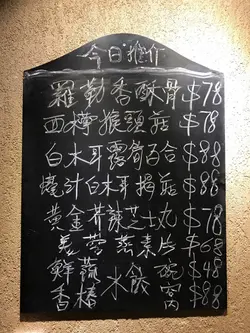 今日推介
羅勒香酥骨 $78
西檸猴頭菇 $78
白木耳露筍百合 $88
燒汁白木耳榆菇 $88
黃金芥辣芝士丸 $78
素片 $68
鮮蔬水餃 碗 $48
香椿 窩 $88